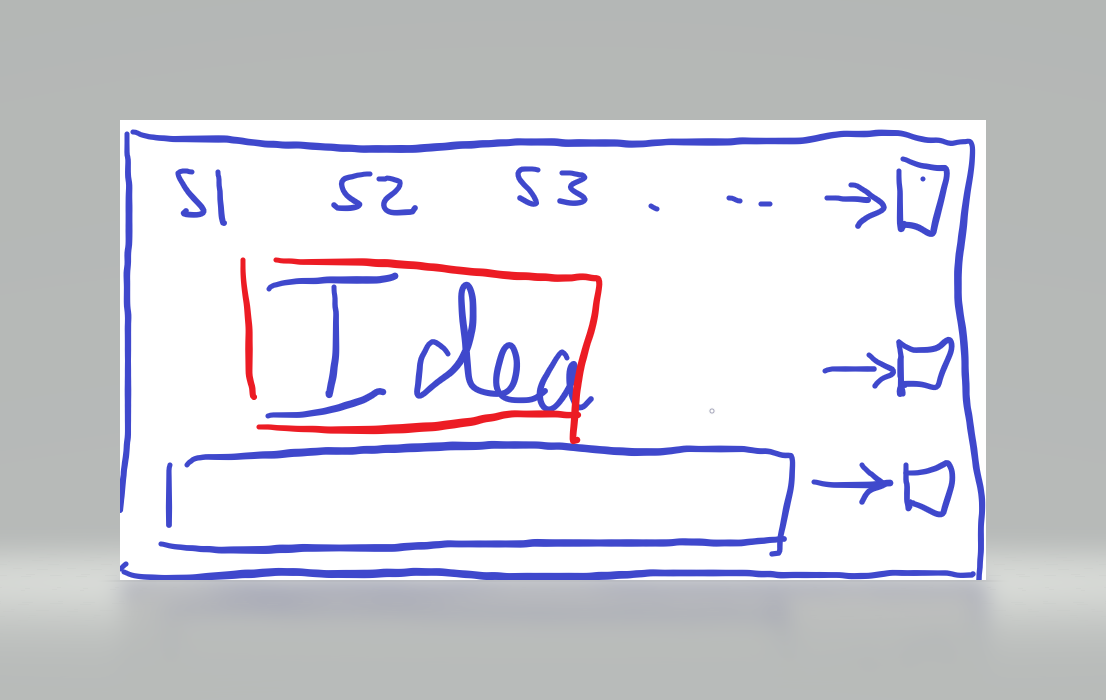 S1 S2 S3 . - -
Idea